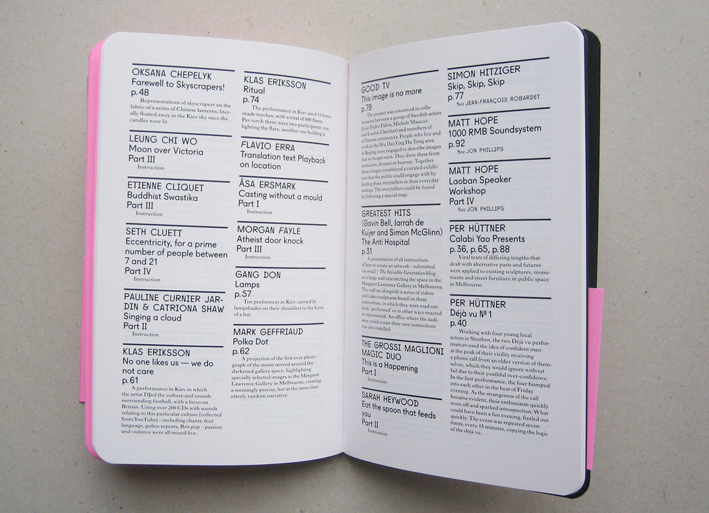 OKSANA CHEPELYK
Farewell to Skyscrapers!
p.48
Representations of skyscrapers on the
fabric of a series of Chinese lanterns, liter-
ally floated away in the Kiev sky once the
candles were lit.
LEUNG CHI WO
Moon over Victoria
Part III
Instruction
ETIENNE CLIQUET
Buddhist Swastika
Part III
Instruction
SETH CLUETT
Eccentricity, for a prime
number of people between
7 and 21
Part IV
Instruction
PAULINE CURNIER JAR-
DIN & CATRIONA SHAW
Singing a cloud
Part II
Instruction
KLAS ERIKSSON
No one likes us — we do
not care
p.61
A performance in Kiev in which
the artist DJed the culture and sounds
surrounding football, with a focus on
Britain. Using over 200 CDs with sounds
relating to this particular culture (collected
from YouTube) – including chants, foul
language, police reports, Brit pop – passion
and violence were all mixed live.
KLAS ERIKSSON
Ritual
p.74
The performance in Kiev used 11 home
made torches, with a total of 600 flares.
Per torch there were two participants: one
lighting the flare, another one holding it.
FLAVIO ERRA
Translation text Playback
on location
ÅSA ERSMARK
Casting without a mould
Part I
Instruction
MORGAN FAYLE
Atheist door knock
Part III
Instruction
GANG DON
Lamps
p.57
Two performers in Kiev carried lit
lampshades on their shoulders in the form
of a hat.
MARK GEFFRIAUD
Polka Dot
p.62
A projection of the first ever photo-
graph of the moon moved around the
darkened gallery space, highlighting
specially selected images in the Margaret
Lawrence Gallery in Melbourne, creating
a seemingly precise, but at the same time
utterly random narrative.
GOOD TV
This image is no more
p.79
The project was conceived in colla-
boration between a group of Swedish artists
and members of
a Chinese community. People who live and
work in the Wu Dao Ying Hu Tong area
in Beijing were engaged to describe images
that no longer exist. They drew these from
memories, dreams or hearsay. Together
these images constituted a curated exhibi-
tion that the public could engage with by
finding these storytellers in their everyday
settings. The storytellers could be found
by following a special map.
GREATEST HITS
(Gavin Bell, Jarrah de
Kuijer and Simon McGlinn)
The Anti Hospital
p.31
A presentation of all instructions
of how to create an artwork – submitted
The Invisible Generation blog
on a large wall intersecting the space in the
Margaret Lawrence Gallery in Melbourne.
The wall sat alongside a series of videos
and video sculptures based on those
instructions, in which they were read out
loud, 'performed' or in other ways enacted
or represented. An office where the audi-
ence could create their own instructions
was also installed.
THE GROSSI MAGLIONI
MAGIC DUO
This is a Happening
Part I
Instruction
SARAH HEYWOOD
Eat the spoon that feeds
you
Part II
Instruction
SIMON HITZIGER
Skip, Skip, Skip
p.77
See JEAN-FRANÇOIS ROBARDET
MATT HOPE
1000 RMB Soundsystem
p.92
See JON PHILLIPS
MATT HOPE
Laoban Speaker
Workshop
Part IV
See JON PHILLIPS
PER HÜTTNER
Calabi Yao Presents
p.36, p.65, p.88
Viral texts of differing lengths that
dealt with alternative pasts and futures
were applied to existing sculptures, monu-
ments and street furniture in public space
in Melbourne.
PER HÜTTNER
Déjà vu Nº 1
p.40
Working with four young local
actors in Shezhen, the two Déjà vu perfor-
mances used the idea of confident men
at the peak of their virility receiving
a phone call from an older version of them-
selves, which they would ignore without
fail due to their youthful over-confidence.
In the first performance, the four bumped
into each other in the heat of Friday
evening. As the strangeness of the call
became evident, their enthusiasm quickly
wore off and sparked introspection. What
could have been a fun evening, fizzled out
quickly. The event was repeated seven
times, every 15 minutes, copying the logic
of the déjà vu.